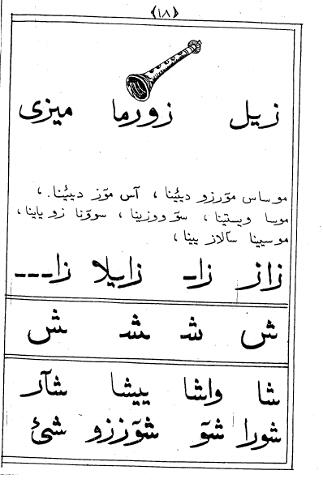 ﴿١٨﴾
زیل زورما میزی
موساس مۆرزو دیئینا ، آس مۆز دیئینا.،
موسا ویستینا ، سۆ ووزینا ، سووٚنا زو یاینا،
موسینا سالاز بینا،
زاز زاـ زایلا زاـــ
ش شـ ـشـ ـش
شا واشا ییشا شآر
شورا شوٚ شوٚرزو شئ